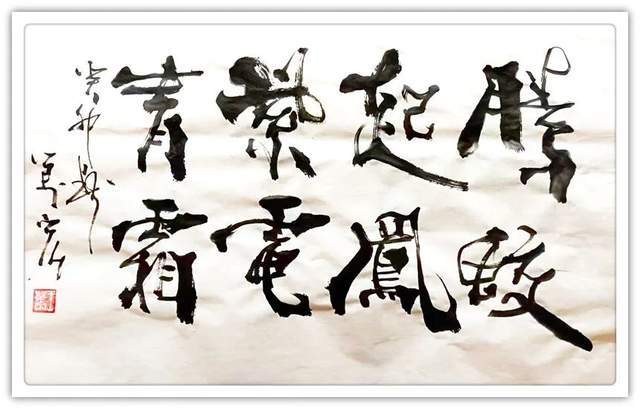 騰蛟
起鳳
紫電
青霜
癸卯